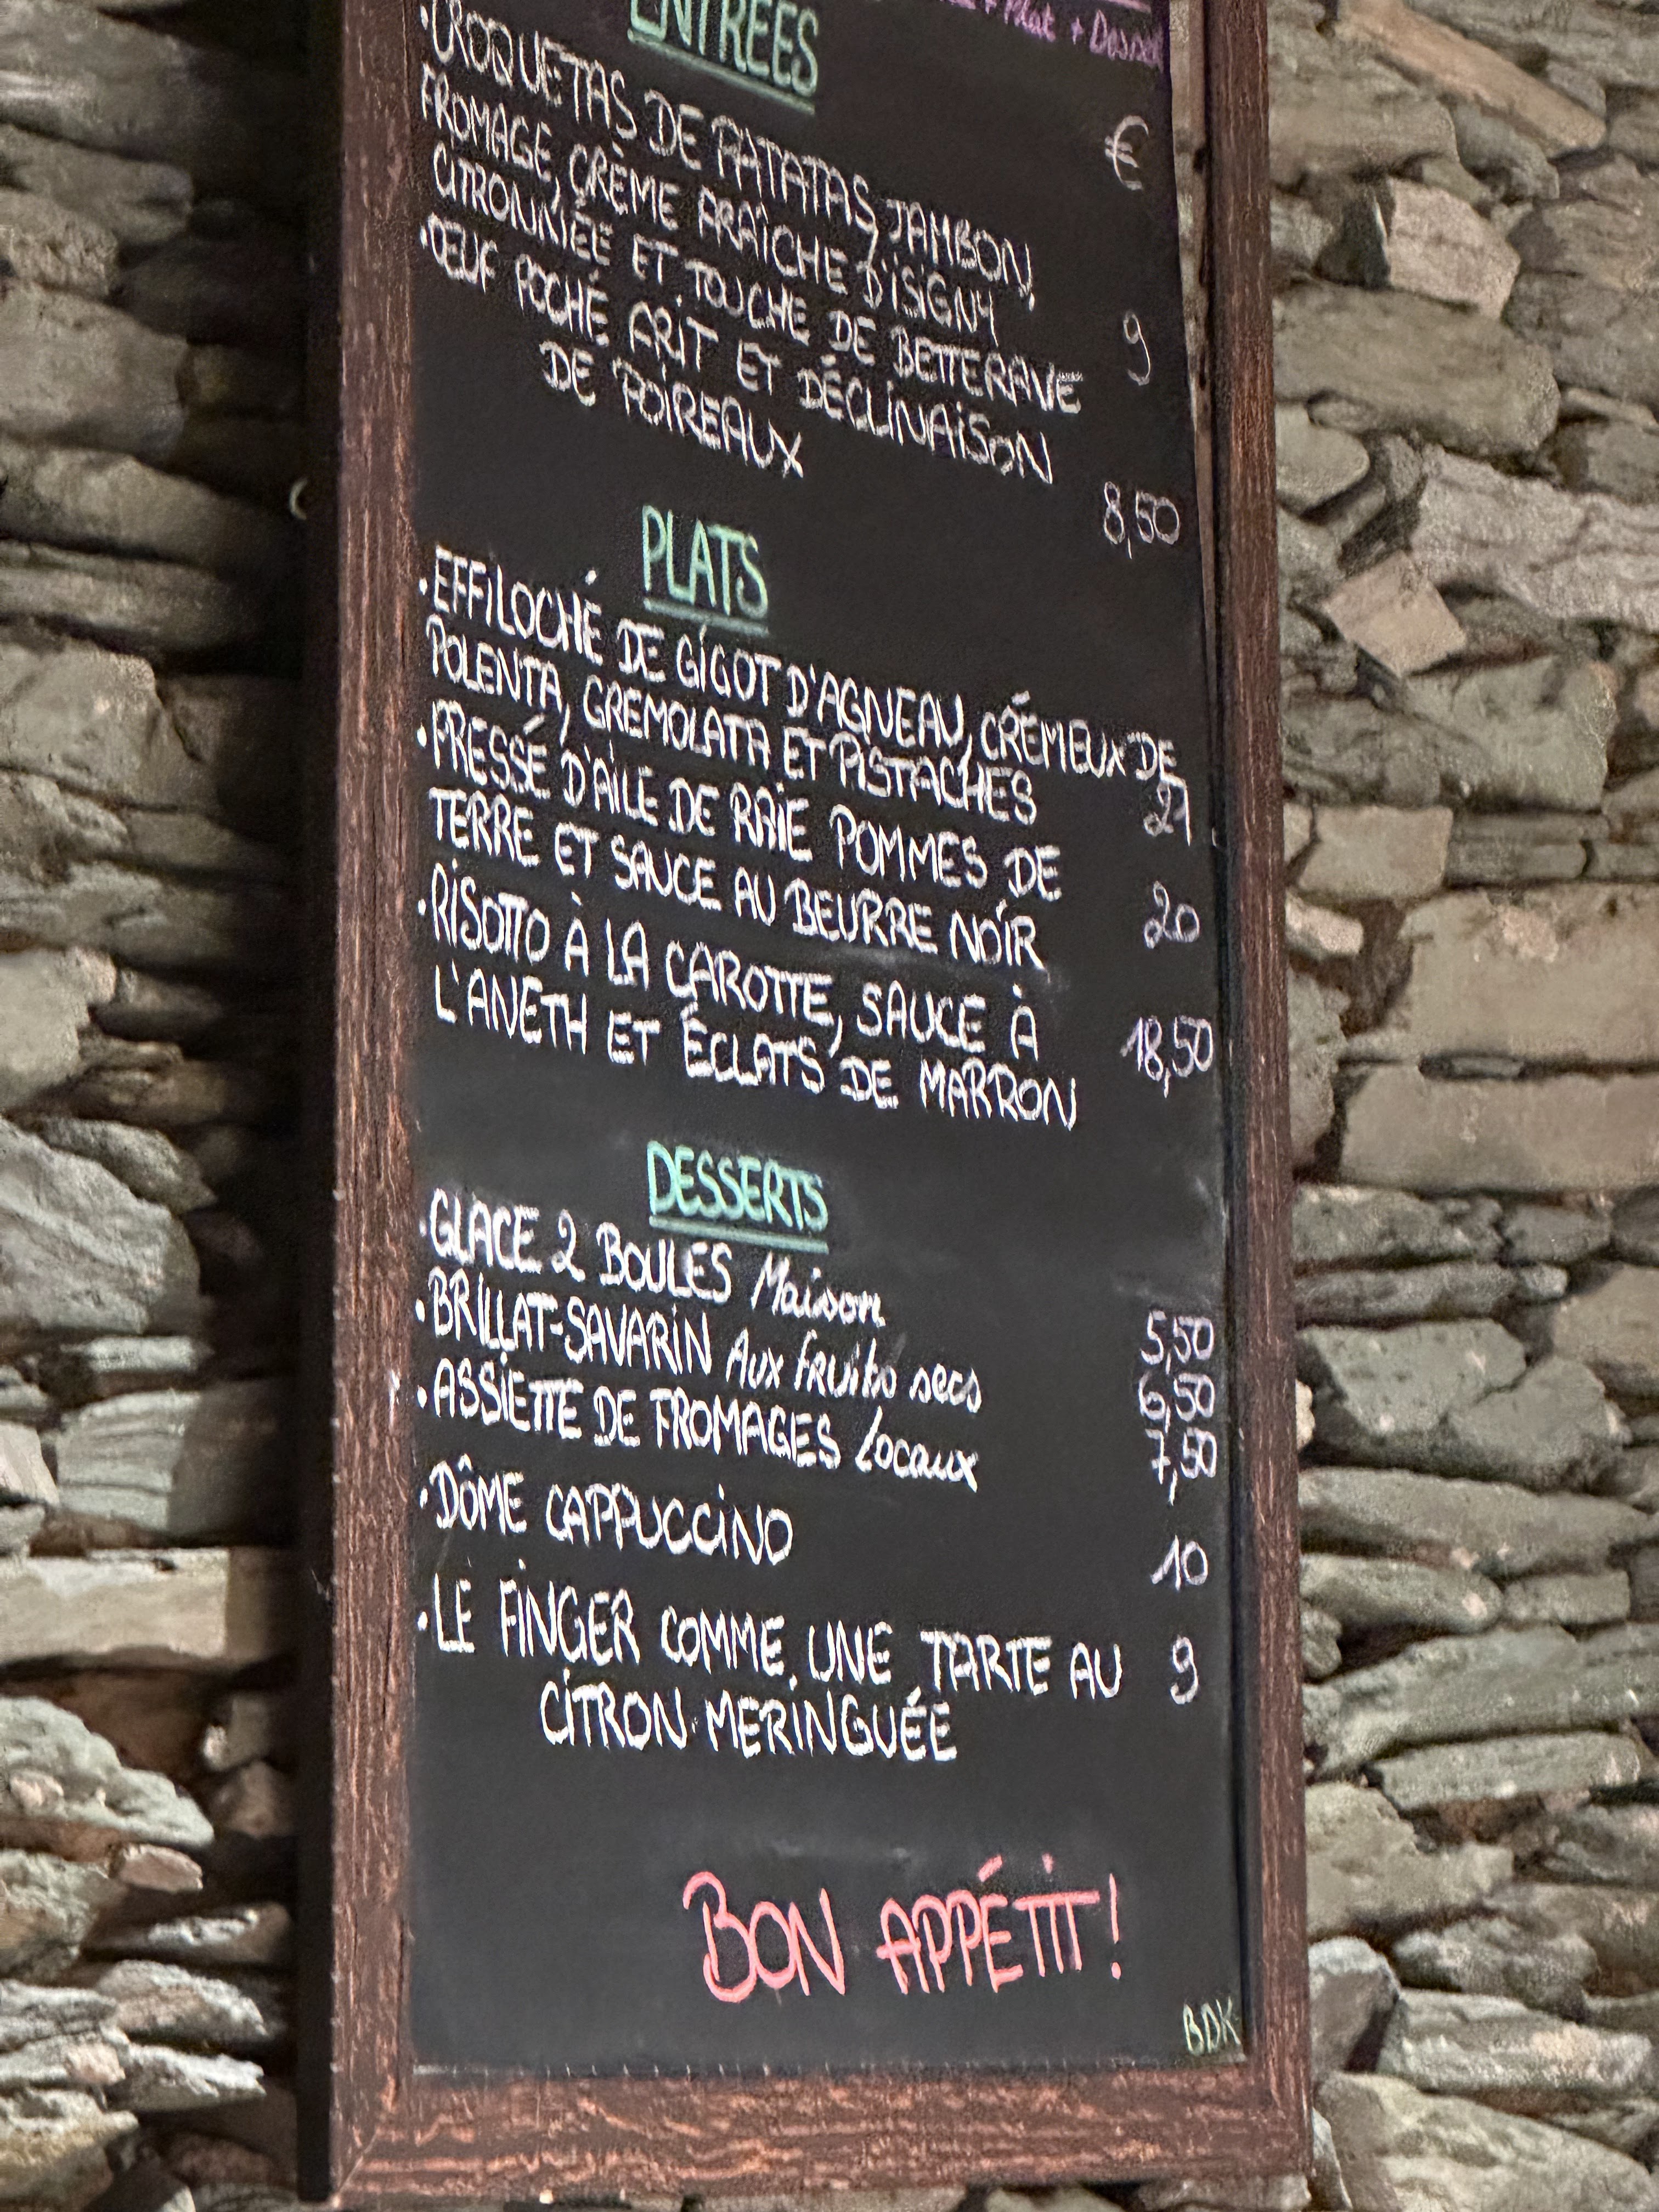 + Plat + Dessert
ENTRÉES
€
•CROQUETAS DE PATATAS, JAMBON,
FROMAGE, CRÈME FRAÎCHE D'ISIGNY
CITRONNÉE ET TOUCHE DE BETTERAVE 9
•ŒUF POCHÉ FRIT ET DÉCLINAISON
DE POIREAUX 8,50
PLATS
•EFFILOCHÉ DE GIGOT D'AGNEAU, CRÉMEUX DE
POLENTA, GREMOLATA ET PISTACHES 21
•PRESSÉ D'AILE DE RAIE POMMES DE
TERRE ET SAUCE AU BEURRE NOIR 20
•RISOTTO À LA CAROTTE, SAUCE À
L'ANETH ET ÉCLATS DE MARRON 18,50
DESSERTS
•GLACE 2 BOULES Maison 5,50
•BRILLAT-SAVARIN Aux fruits secs 6,50
•ASSIETTE DE FROMAGES Locaux 7,50
•DÔME CAPPUCCINO 10
•LE FINGER COMME UNE TARTE AU 9
CITRON MERINGUÉE
BON APPÉTIT!
BDK